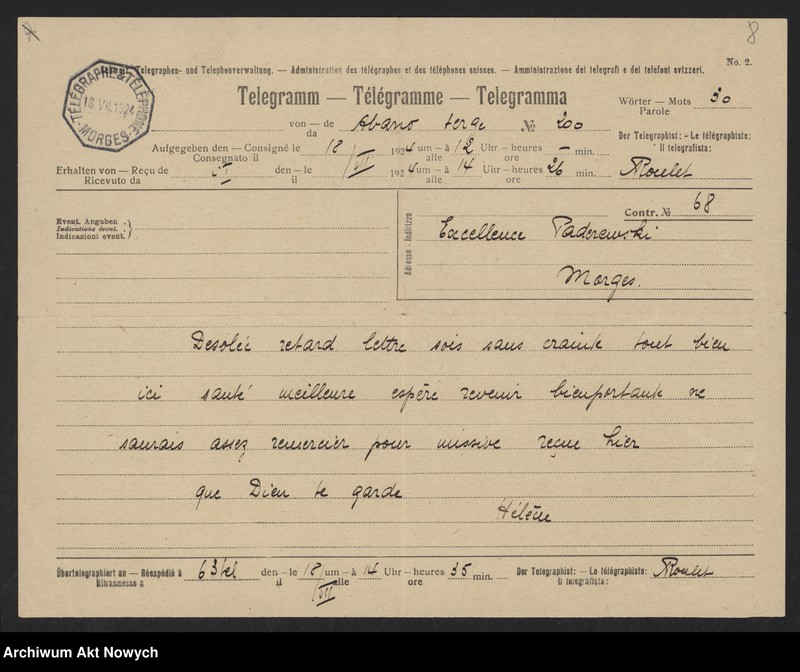 8
Telegraphen- und Telephonverwaltung. — Administration des télégraphes et des téléphones suisses. — Amministrazione dei telegrafi e dei telefoni svizzeri.
No. 2.
TÉLÉGRAPHE & TÉLÉPHONE
18.VII.1924
MORGES
Telegramm — Télégramme — Telegramma
Wörter — Mots 30
Parole
von — de Abano terme № 200
da
Der Telegraphist: - Le télégraphiste:
Il telegrafista:
Aufgegeben den — Consigné le 18/VII 1924 um — à 12 Uhr — heures — min.
Consegnato il alle ore
Erhalten von — Reçu de den — le 1924 um — à 14 Uhr — heures 26 min.
Ricevuto da il alle ore
Roulet
Contr. № 68
Event. Angaben
Indications évent.
Indicazioni event.
Adresse - Indirizzo
Excellence Paderewski
Morges.
Desolée retard lettre sois sans crainte tout bien
ici santé meilleure espère revenir bienportante ne
saurais assez remercier pour missive reçue hier
que Dieu te garde
Hélène
Übertelegraphiert an — Réexpédié à 63 tel den — le 18/VII um — à 14 Uhr — heures 35 min.
Ritrasmesso a il alle ore
Der Telegraphist: - Le télégraphiste: Roulet
Il telegrafista:
Archiwum Akt Nowych